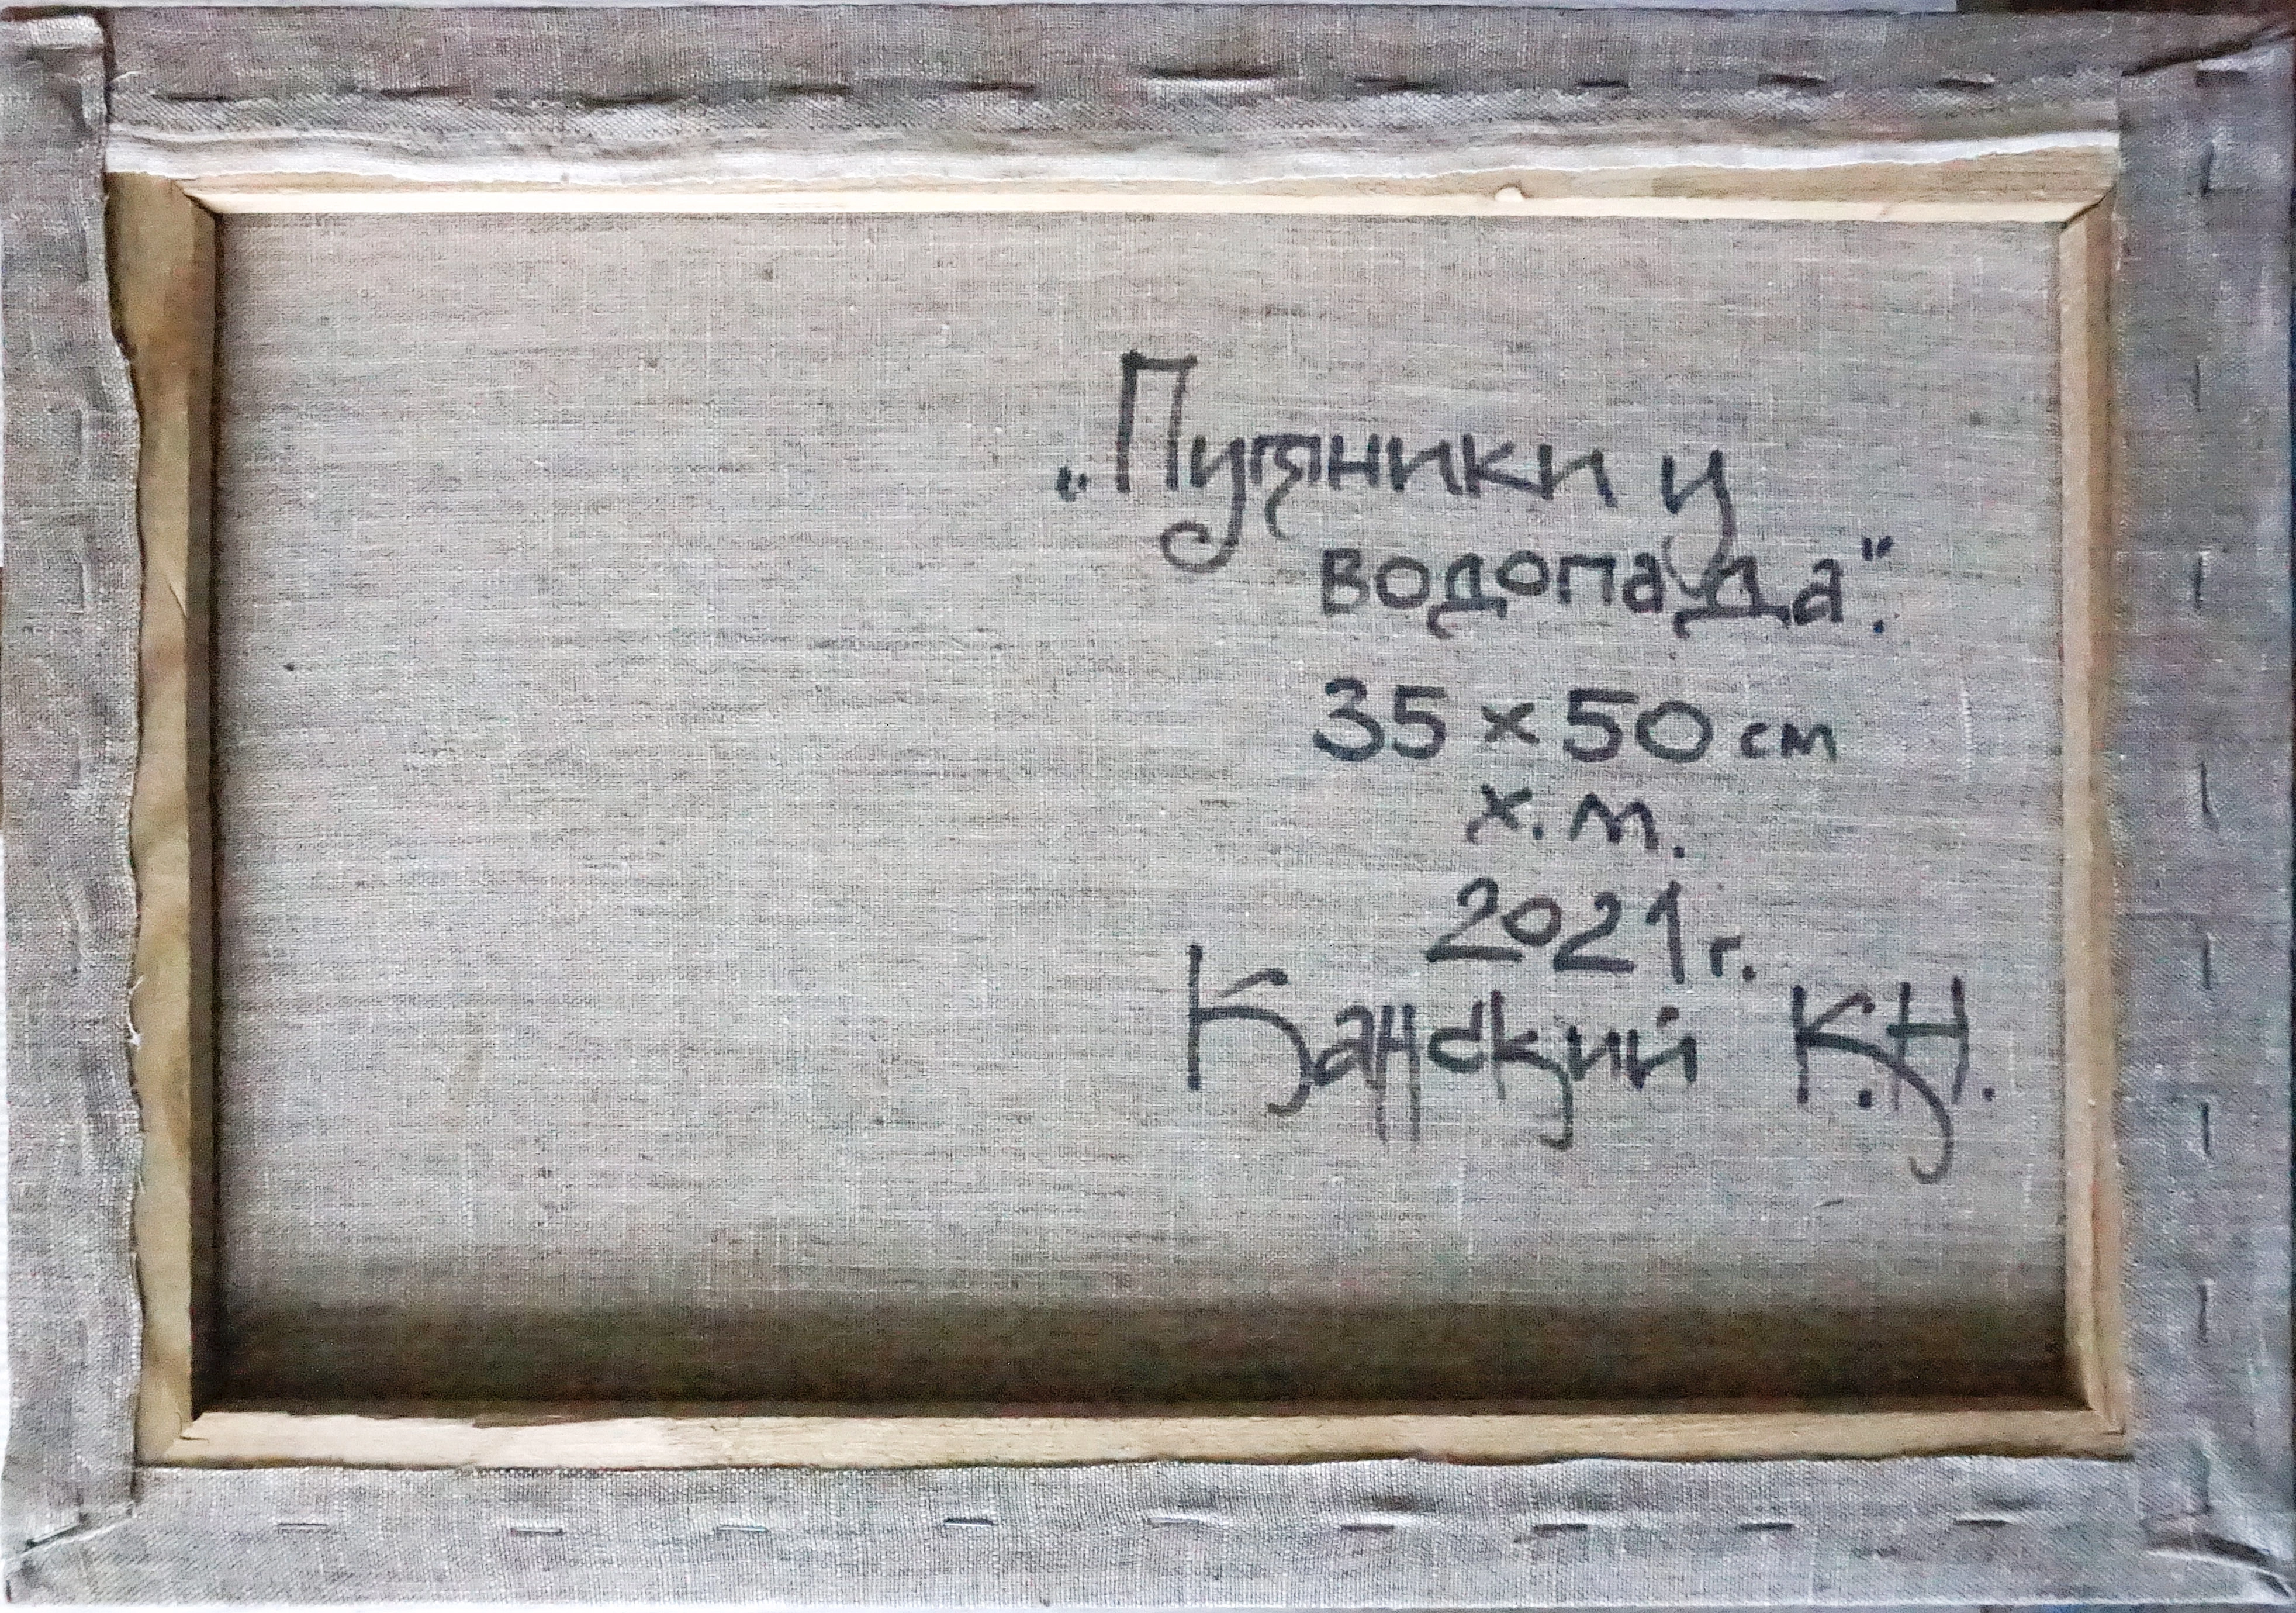 „Путники у
водопада".
35 x 50 см
х. м.
2021 г.
Канский К.Н.